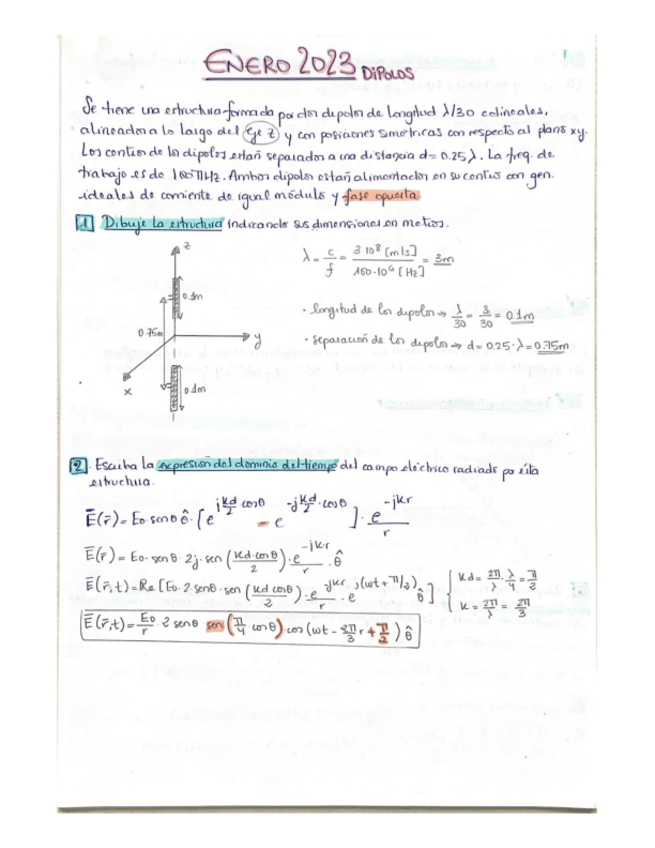 ENERO 2023 DIPOLOS
Se tiene una estructura formada por dos dipolos de longitud λ/30 colineales,
alineados a lo largo del eje z y con posiciones simétricas con respecto al plano xy.
Los centros de los dipolos están separados a una distancia d= 0.25 λ. La freq. de
trabajo es de 100 MHz. Ambos dipolos están alimentados en su centro con gen.
ideales de corriente de igual módulo y fase opuesta
1 Dibuje la estructura indicando sus dimensiones en metros.
z
0.1m
0.75m
y
x
0.1m
λ = c/f = 3·10⁸ [m/s] / 100·10⁶ [Hz] = 3m
· longitud de los dipolos → λ/30 = 3/30 = 0.1m
· separación de los dipolos → d = 0.25·λ = 0.75m
2. Escriba la expresión del dominio del tiempo del campo eléctrico radiado por esta
estructura.
Ē(r̄) = E₀·senθ θ̂·[e^(j kd/2 cosθ) − e^(−j kd/2·cosθ)]·e^(−jkr)/r
Ē(r̄) = E₀·senθ 2j·sen(kd·cosθ/2)·e^(−jkr)/r·θ̂
Ē(r̄,t) = Re[E₀·2·senθ·sen(kd cosθ/2)·e^(−jkr)/r·e^(j(ωt+π/2)) θ̂]
kd = 2π/λ·λ/4 = π/2
k = 2π/λ = 2π/3
Ē(r̄,t) = E₀/r·2 senθ sen(π/4 cosθ) cos(ωt − 2π/3 r + π/2) θ̂